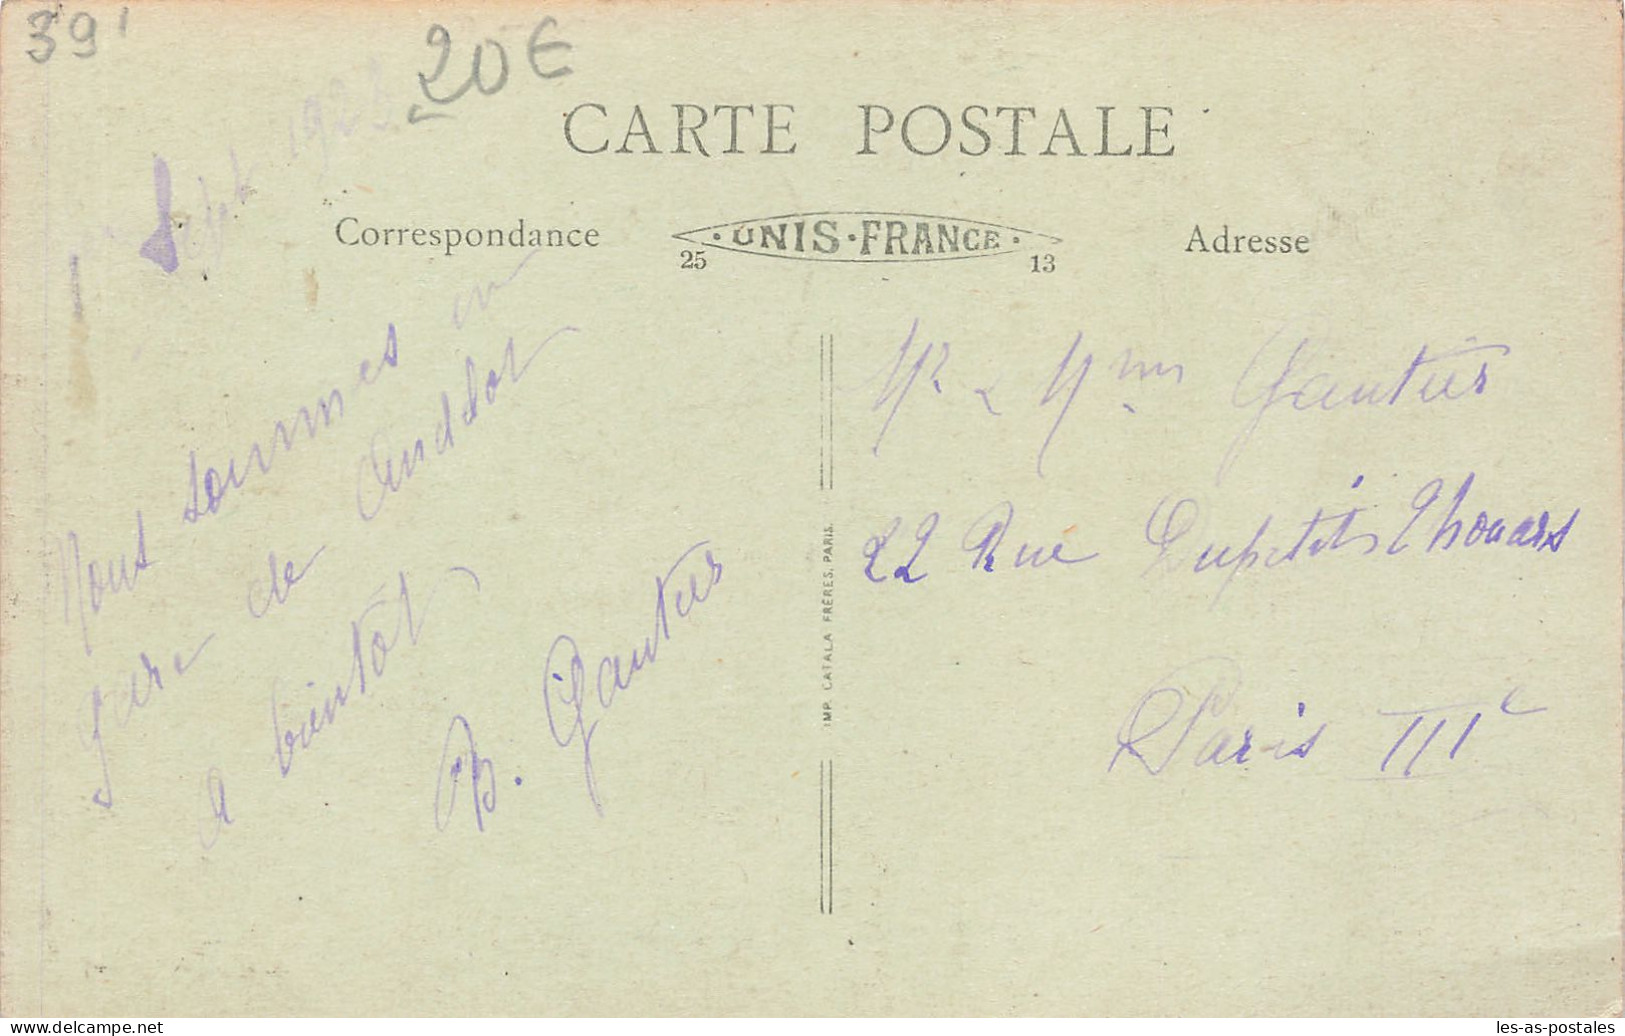 39
20€
Sept 192
CARTE POSTALE
Correspondance
·UNIS·FRANCE·
25 13
Adresse
Nous sommes en
gare de Andelot
a bientôt
B. Gautier
Mr & Mme Gautier
22 Rue Dupetit Thouars
Paris IIIe
IMP. CATALA FRÈRES, PARIS.
www.delcampe.net
les-as-postales